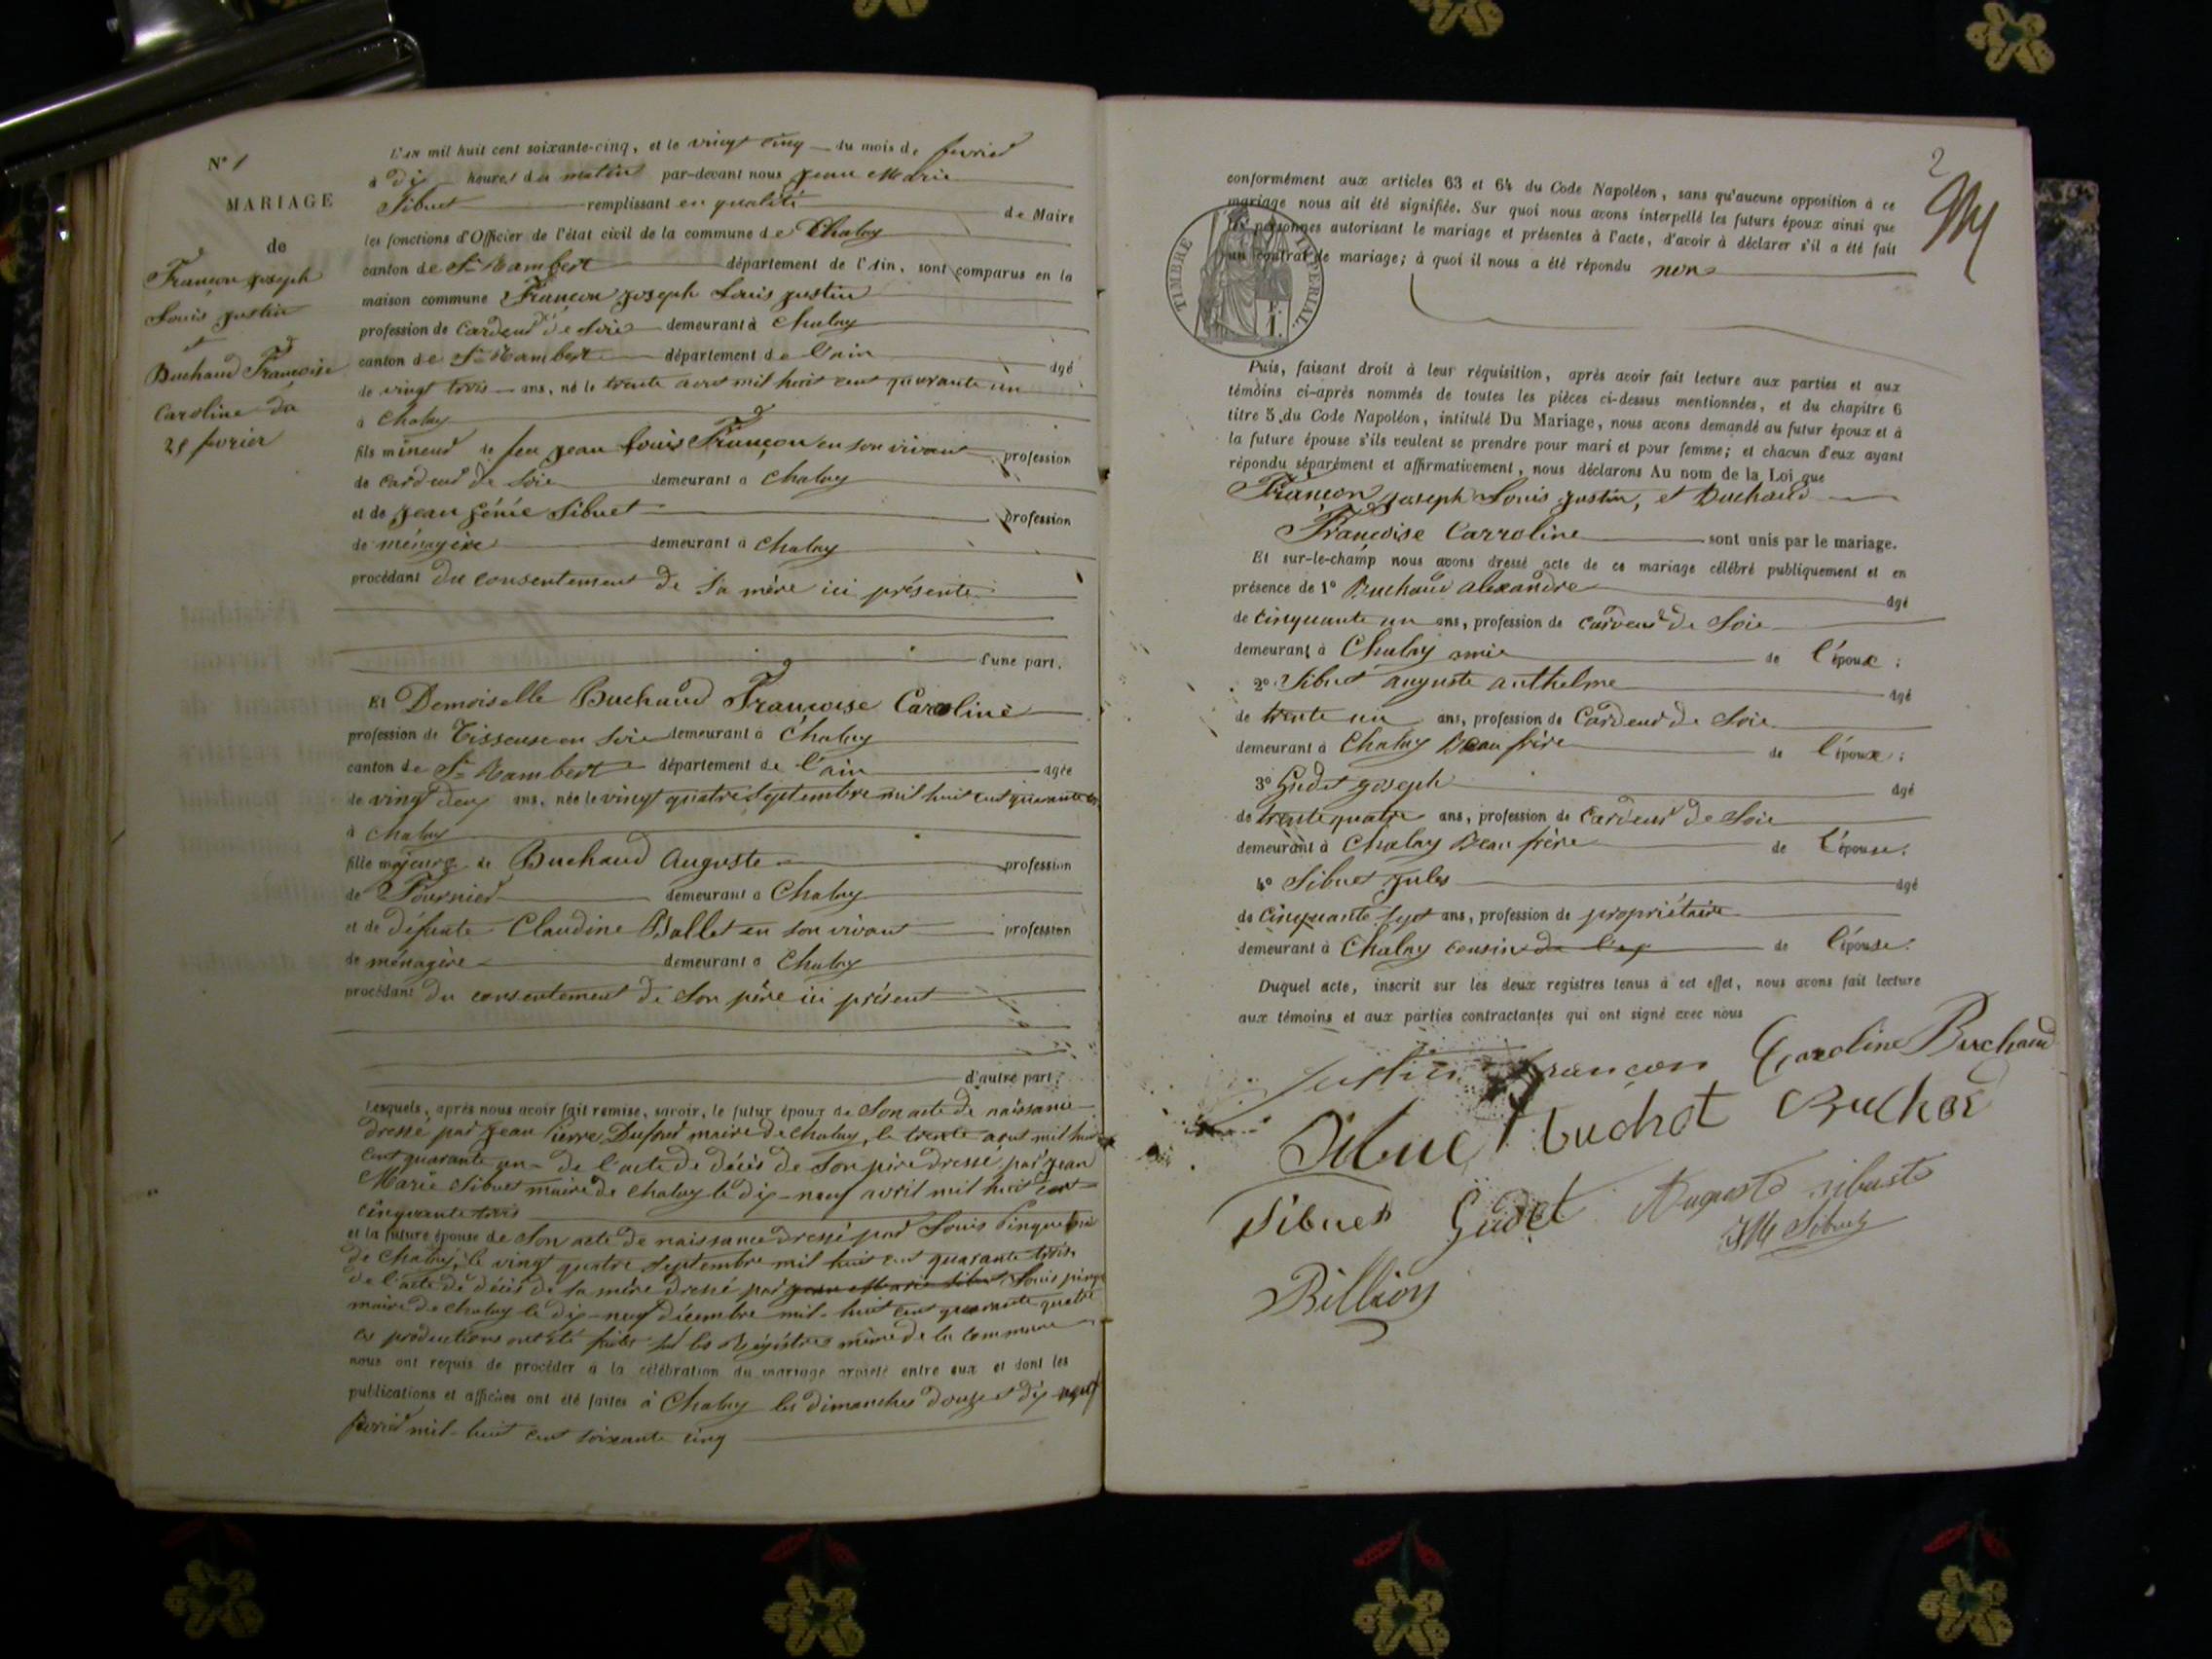 N° 1
MARIAGE
de
Françon joseph
Louis justin
et
Buchaud Françoise
Caroline du
25 février
L'an mil huit cent soixante-cinq, et le vingt cinq du mois de fevrier
à dix heures du matin par-devant nous jean Marie
Sibuet remplissant en qualité de Maire
les fonctions d'Officier de l'état civil de la commune de Chaley
canton de St Rambert département de l'Ain, sont comparus en la
maison commune Françon joseph Louis justin
profession de Cardeur de Soie demeurant à Chaley
canton de St Rambert département de l'ain âgé
de vingt trois ans, né le trente aout mil huit cent quarante un
à Chaley
fils mineur de feu jean Louis Françon en son vivant profession
de cardeur de Soie demeurant à Chaley
et de jean génie Sibuet profession
de ménagère demeurant à Chaley
procédant du consentement de sa mère ici présente
d'une part.
Et Demoiselle Buchaud Françoise Caroline
profession de Tisseuse en Soie demeurant à Chaley
canton de St Rambert département de l'ain âgée
de vingt deux ans, née le vingt quatre septembre mil huit cent quarante
à Chaley
fille majeure de Buchaud Auguste profession
de Fournier demeurant à Chaley
et de défunte Claudine Ballet en son vivant profession
de ménagère demeurant à Chaley
procédant du consentement de Son père ici présent
d'autre part.
Lesquels, après nous avoir fait remise, savoir, le futur époux de Son acte de naissance
dressé par jean Pierre Dufour maire de Chaley, le trente aout mil huit
cent quarante un - de l'acte de décès de Son père dressé par jean
Marie Sibuet maire de Chaley le dix-neuf avril mil huit cent
cinquante trois
et la future épouse de Son acte de naissance dressé par Louis
de Chaley, le vingt quatre septembre mil huit cent quarante trois
de l'acte de décès de sa mère dressé par jean Marie Sibuet Louis
maire de Chaley le dix-neuf décembre mil-huit cent quarante quatre
ces productions ont été faites sur les Régistres même de la commune
nous ont requis de procéder à la célébration du mariage projeté entre eux et dont les
publications et affiches ont été faites à Chaley les dimanches douze et dix-neuf
fevrier mil-huit cent soixante cinq
2
conformément aux articles 63 et 64 du Code Napoléon, sans qu'aucune opposition à ce
mariage nous ait été signifiée. Sur quoi nous avons interpellé les futurs époux ainsi que
les personnes autorisant le mariage et présentes à l'acte, d'avoir à déclarer s'il a été fait
un contrat de mariage; à quoi il nous a été répondu non
TIMBRE IMPERIAL.
1 F.
Puis, faisant droit à leur réquisition, après avoir fait lecture aux parties et aux
témoins ci-après nommés de toutes les pièces ci-dessus mentionnées, et du chapitre 6
titre 5 du Code Napoléon, intitulé Du Mariage, nous avons demandé au futur époux et à
la future épouse s'ils veulent se prendre pour mari et pour femme; et chacun d'eux ayant
répondu séparément et affirmativement, nous déclarons Au nom de la Loi que
Françon joseph Louis justin, et Buchaud
Françoise Carroline sont unis par le mariage.
Et sur-le-champ nous avons dressé acte de ce mariage célébré publiquement et en
présence de 1° Buchaud alexandre âgé
de cinquante un ans, profession de cardeur de Soie
demeurant à Chaley amie de l'époux;
2° Sibuet auguste anthelme âgé
de trente un ans, profession de Cardeur de Soie
demeurant à Chaley Beau frère de l'époux;
3° Gudet joseph âgé
de trente quatre ans, profession de Cardeur de Soie
demeurant à Chaley Beau frère de l'épouse.
4° Sibuet jules âgé
de Cinquante sept ans, profession de propriétaire
demeurant à Chaley cousin de l'ep de l'épouse.
Duquel acte, inscrit sur les deux registres tenus à cet effet, nous avons fait lecture
aux témoins et aux parties contractantes qui ont signé avec nous
justin françon Caroline Buchaud
Sibuet
Sibuet Gudet Auguste
JM Sibuet
Billion